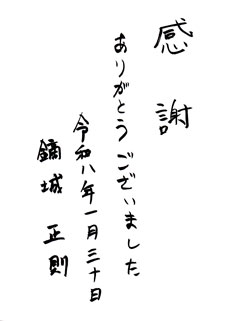 感謝
ありがとうございました
令和八年一月三十日
鏑城 正則